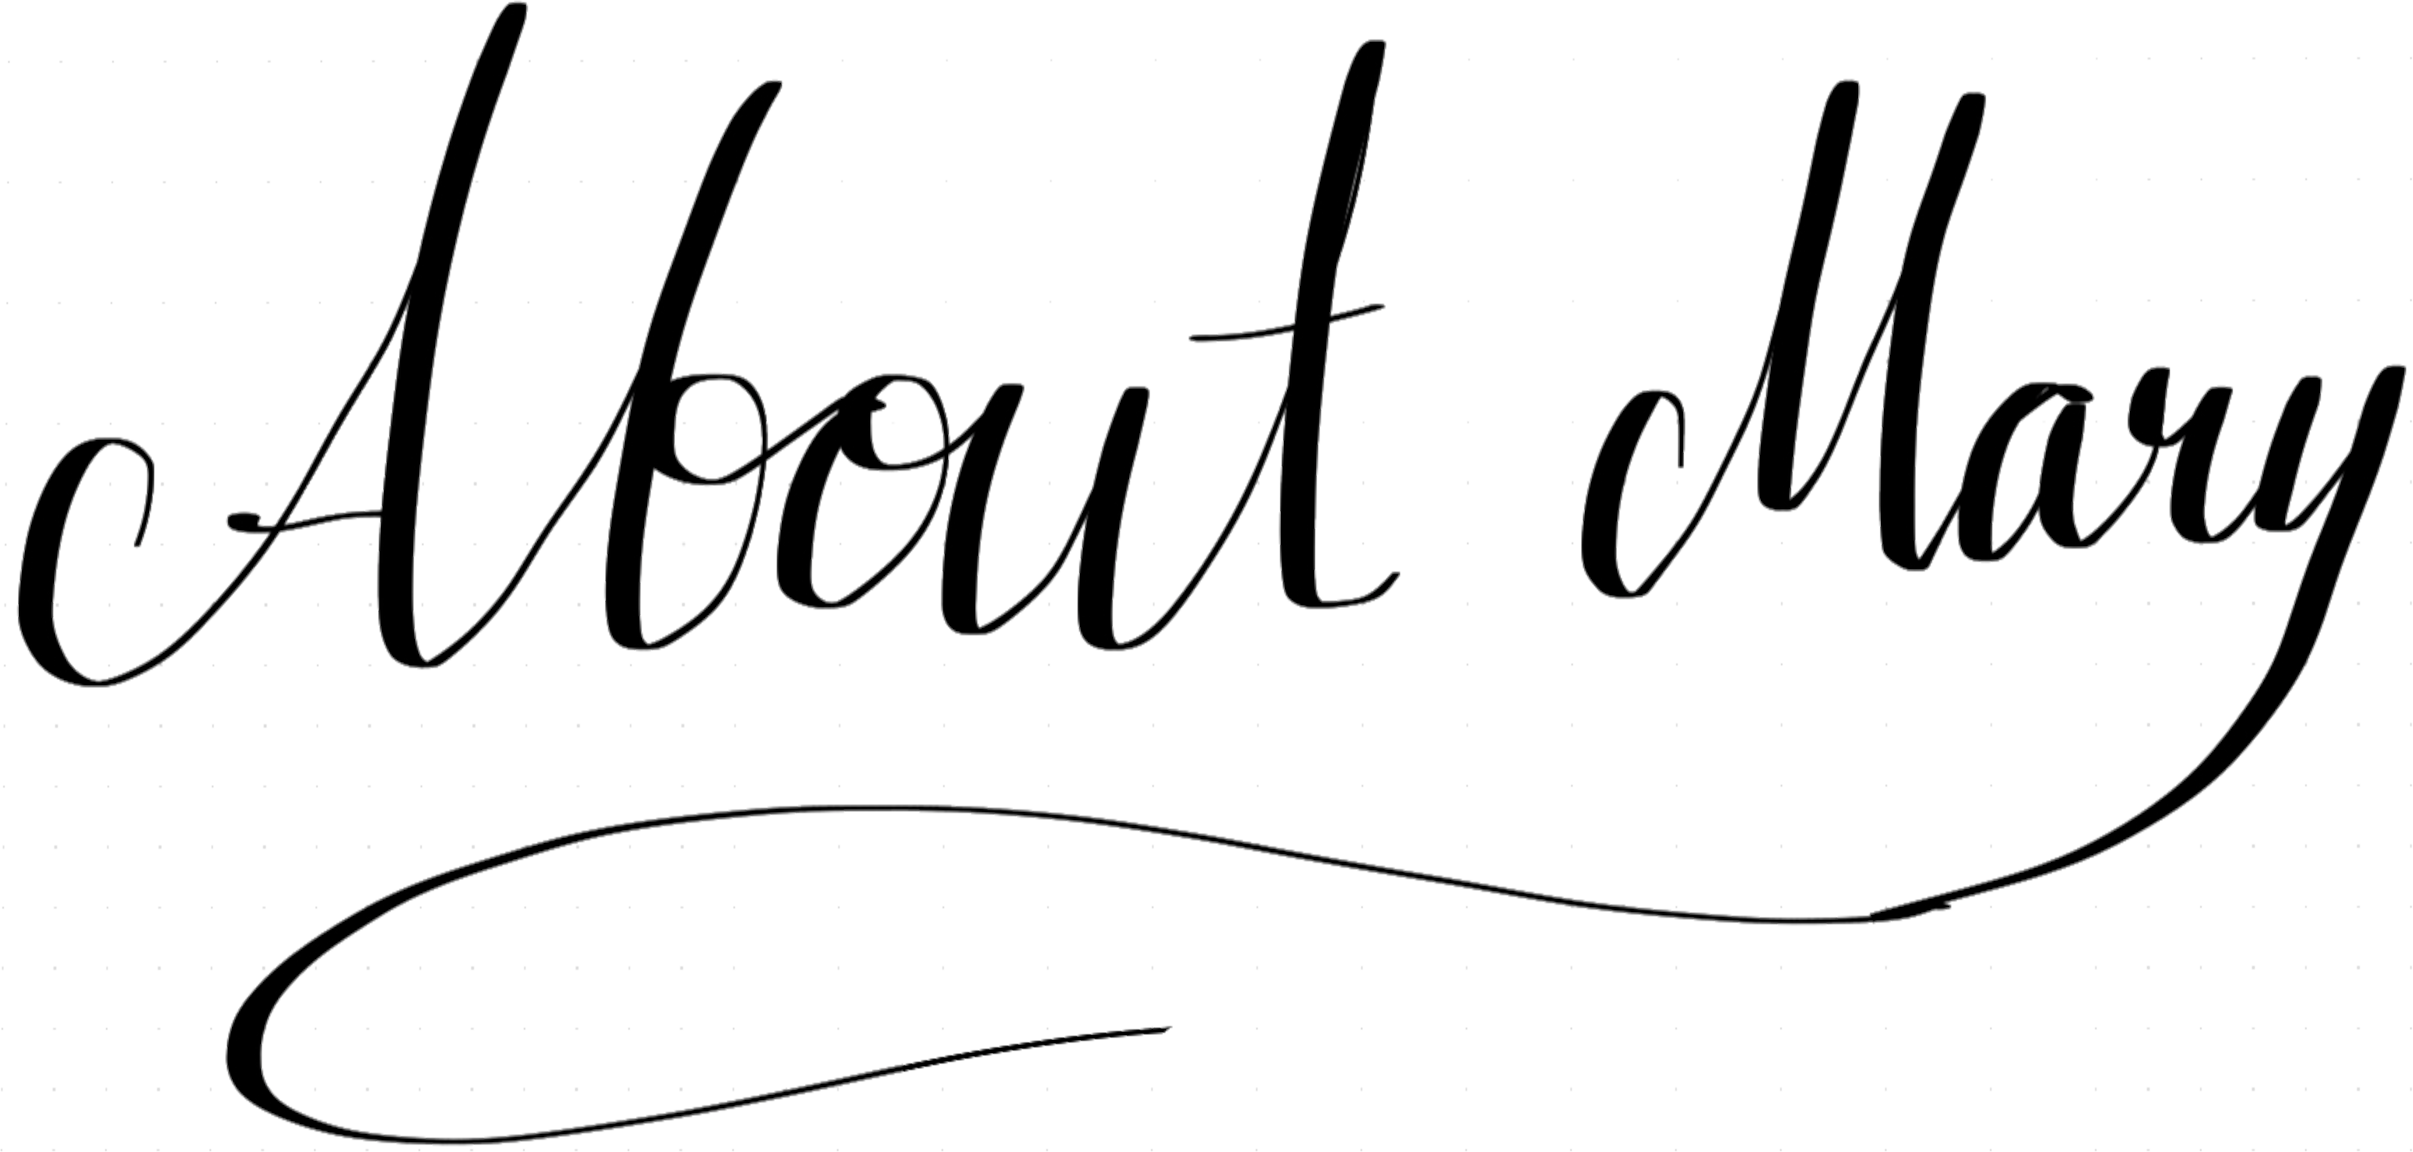 About Mary